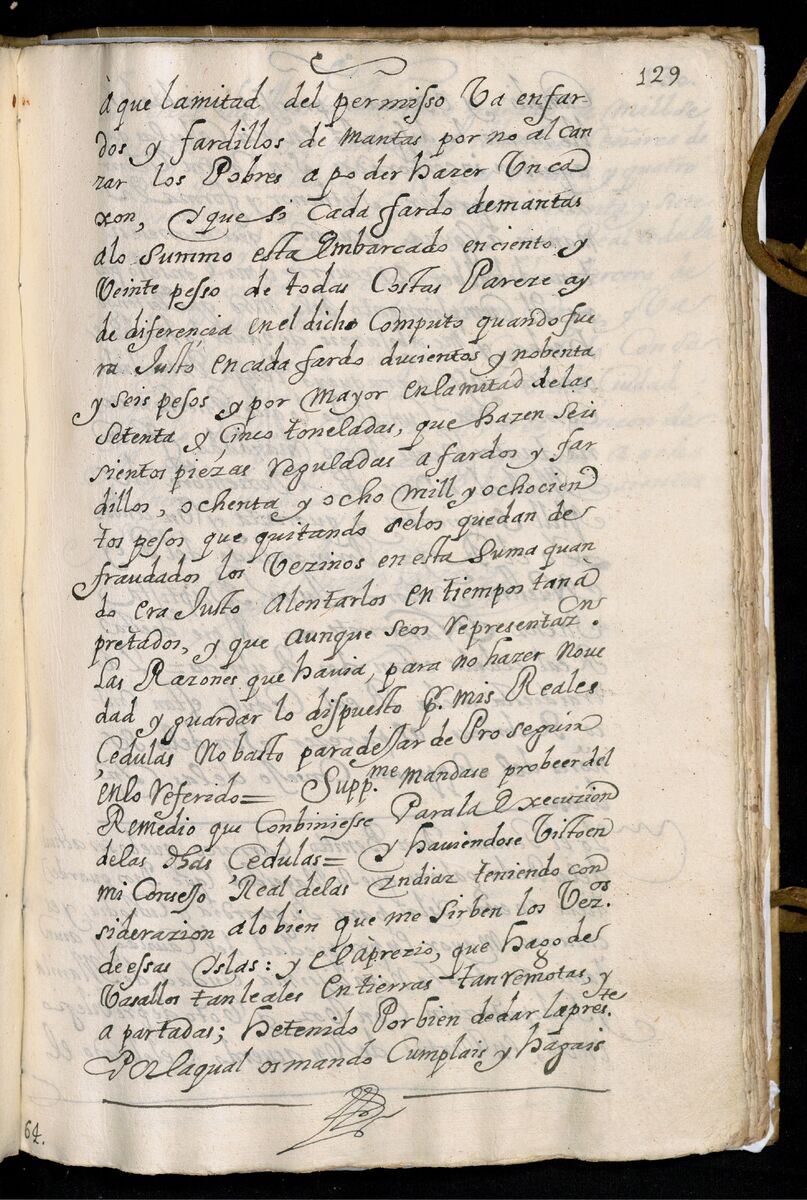 129
à que lamitad del permisso Va enfar-
dos y fardillos de mantas por no alcan
zar los Pobres a poder hazer Un ca
xon, y que si cada fardo demantas
alo summo esta Embarcado enciento y
Veinte pesso de todas Costas Pareze ay
de diferencia enel dicho Computo quando fue
ra Justo encada fardo ducientos y nobenta
y seis pesos y por mayor enlamitad delas
setenta y Cinco toneladas, que hazen seis
sientos piezas reguladas a fardos y far
dillos, ochenta y ocho mill y ochocien
tos pesos que quitando selos quedan de
fraudados los Vezinos en esta suma quan
do era Justo alentarlos en tiempos tan à
pretados, y que aunque seos representaron
Las Razones que hauia, para no hazer nove
dad y guardar lo dispuesto pr. mis Reales
Cedulas No basto paradejar de Proseguir
enlo referido= Suppme. mandase probeer del
Remedio que Conbiniesse Parala Execuzion
delas dhas Cedulas= y hauiendose Visto en
mi Consejo Real delas Indias teniendo con
siderazion alo bien que me sirben los Vezos.
de essas Yslas: y el àprezio, que hago de
Vasallos tan leales en tierras tan remotas, y
apartadas; hetenido Por bien de dar la preste.
Por laqual osmando Cumplais y hagais
64.